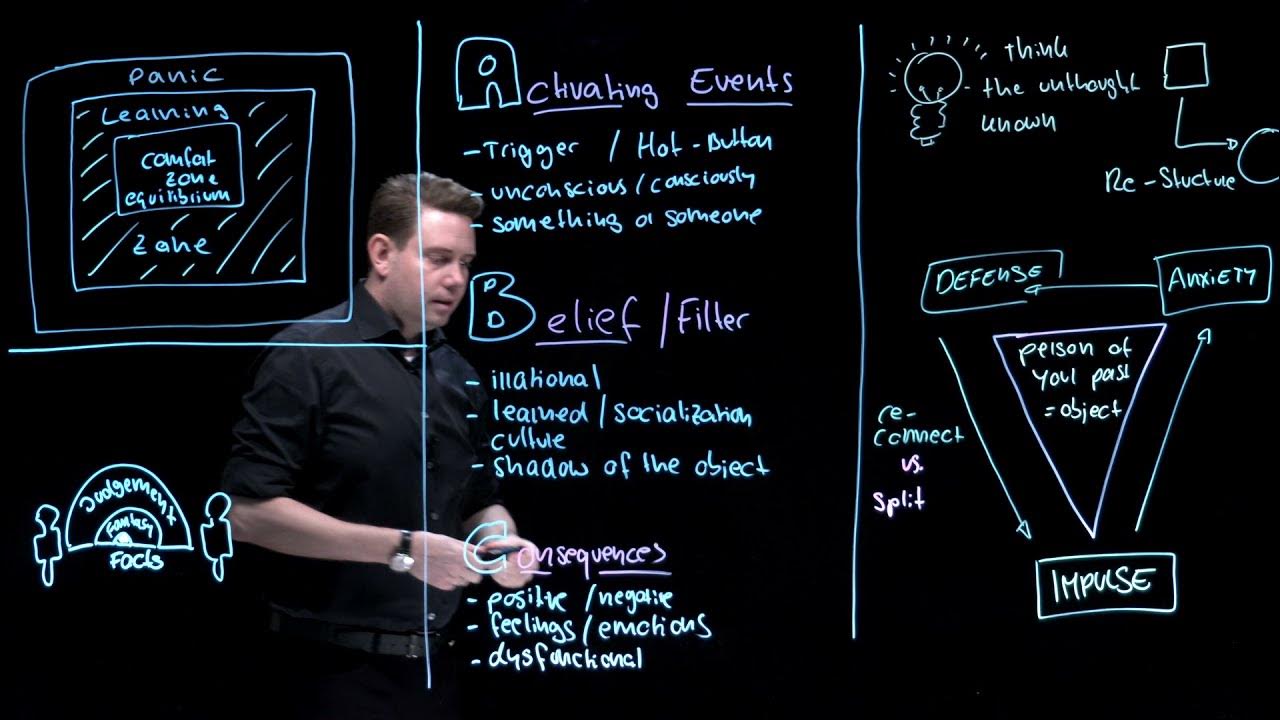 Panic
Learning
comfort
zone
equilibrium
zone
Judgement
Fantasy
Facts
Activating Events
- Trigger / Hot-Button
- unconscious / consciously
- something or someone
Belief / Filter
- irrational
- learned / socialization
culture
- shadow of the object
Consequences
- positive / negative
- feelings / emotions
- dysfunctional
think
the unthought
known
Re-Structure
DEFENSE
ANXIETY
person of
your past
= object
re-
connect
vs.
split
IMPULSE